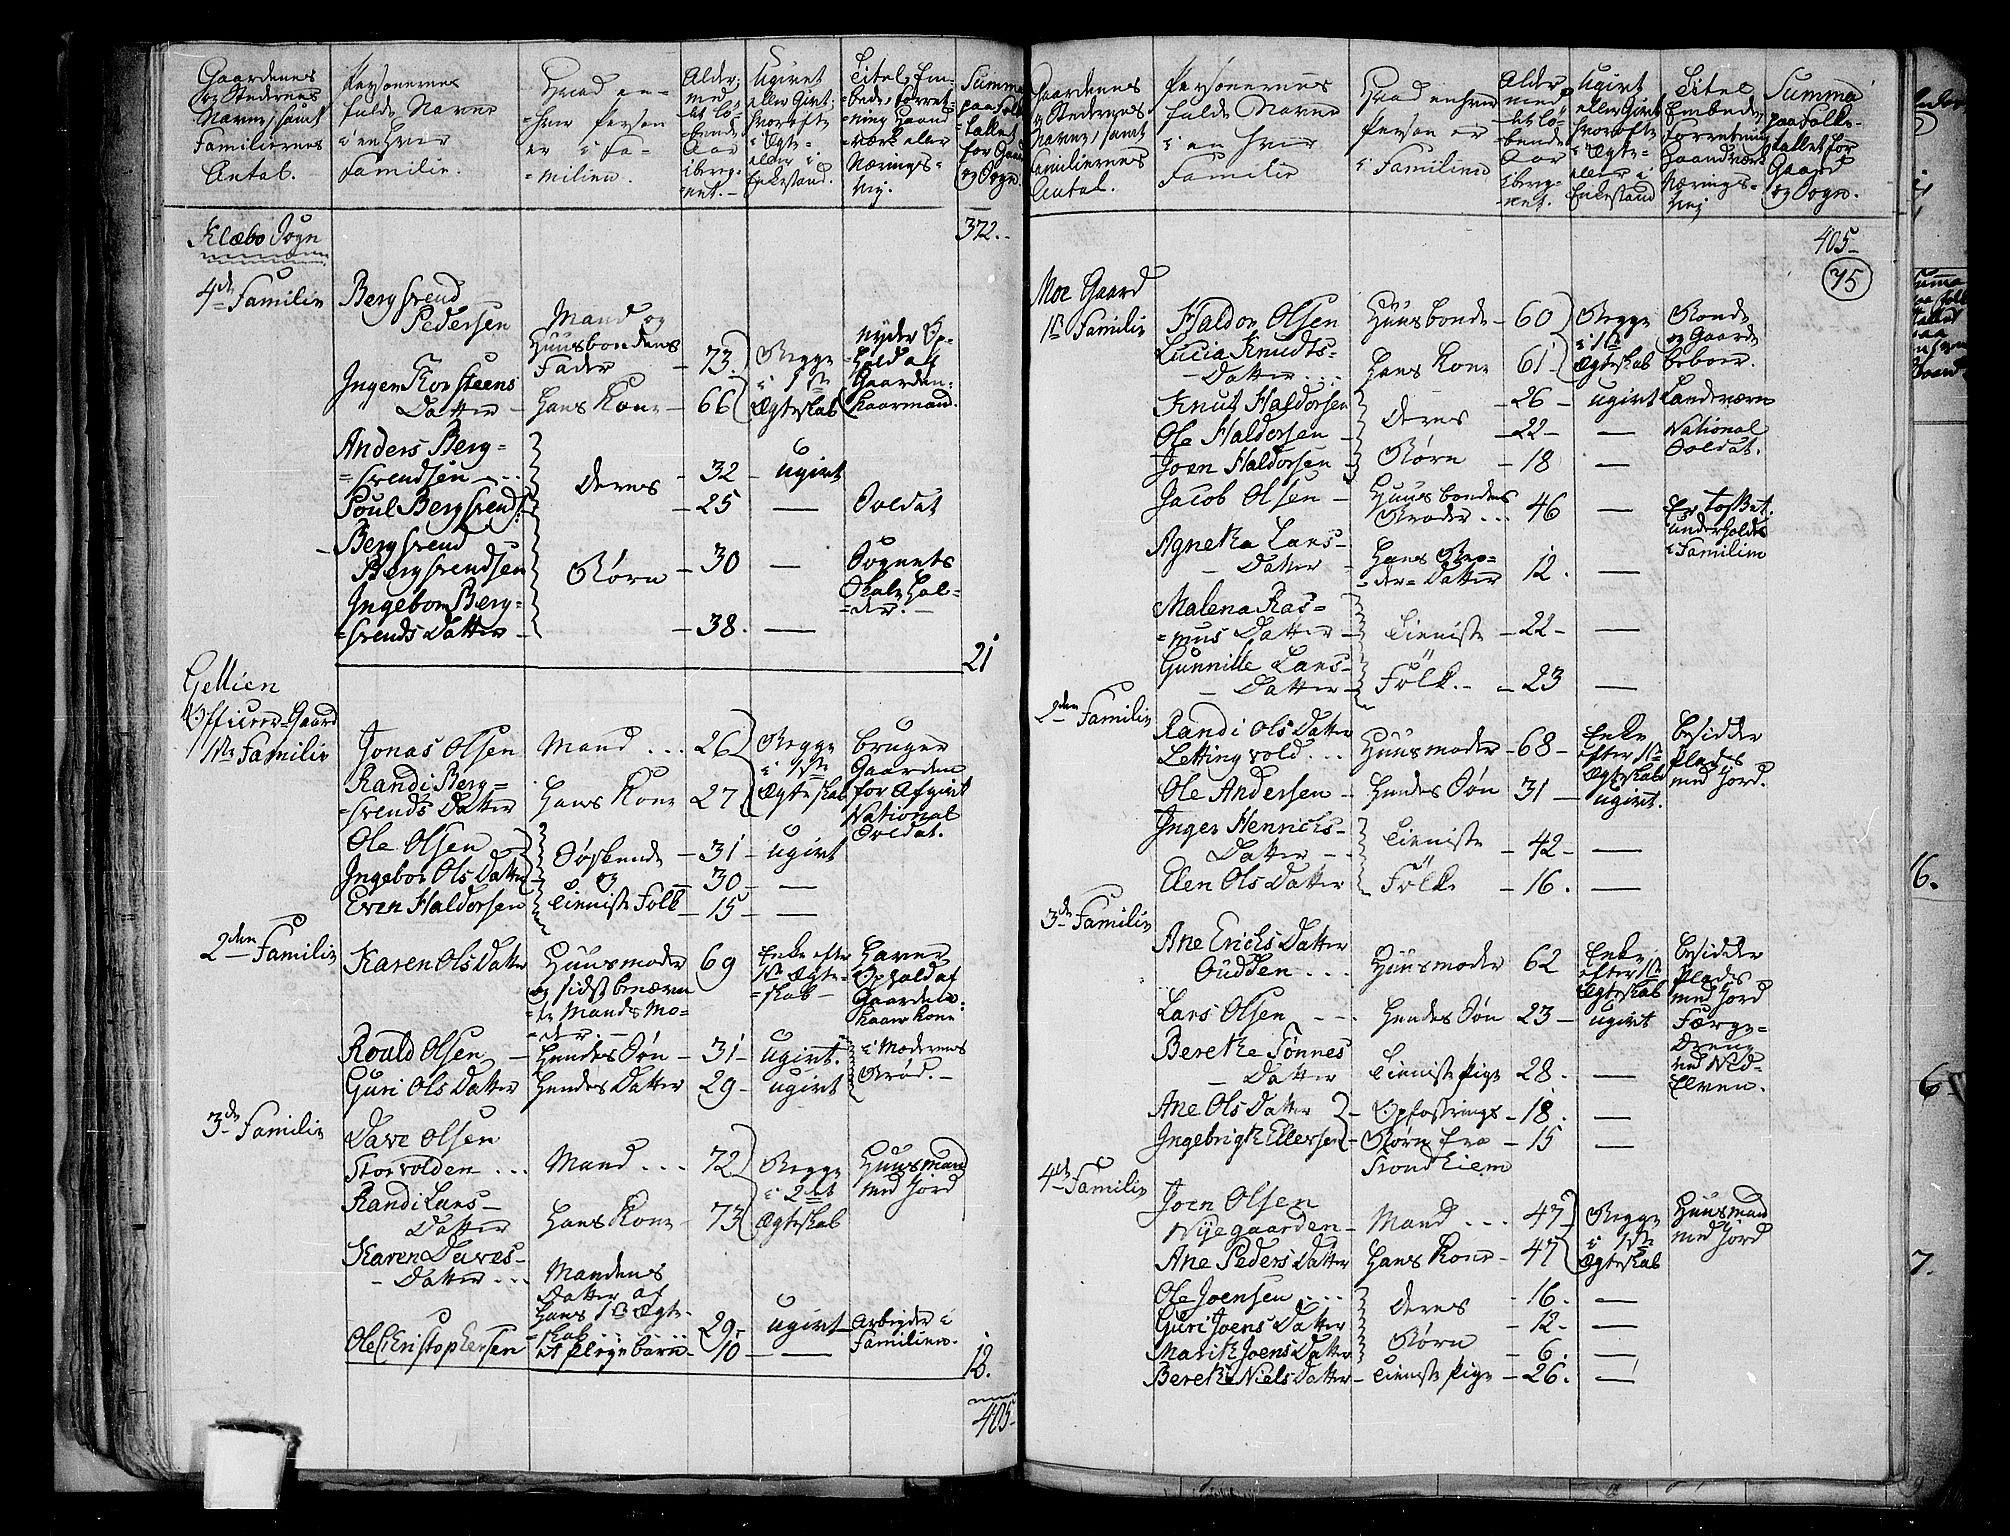 Gaardenes
og Stedernes
Navne, samt
Familiernes
Antal.
Personernes
fulde Navne
i enhver
Familie.
Hvad en-
=hver Person
er i Fa-
=milien.
Alder
med
det lø-
bende
Aar
ibereg-
net.
Ugivt
eller Givt,
hvor ofte
i Ægte-
eller i
Enkestand.
Titel, Em-
bede, forret-
ning Haand
værk eller
Nærings-
vej.
Summa
paa Folke-
tallet
for Gaard
og Sogn.
Klæbo Sogn
372.
4de Familie
Bergsvend
Pedersen
Mand og
Huusbondens
Fader
73.
Begge
i 1ste
Ægteskab
nyder Op-
hold af
Gaarden.
Kaarmand.
Inger Torsteens
Datter
Hans Kone
66
Anders Berg-
=svendsen
Deres
Børn
32
ugivt
Poul Bergsvends:
25
—
Soldat
Bergsvend
Bergsvendsen
30
—
Sognets
Skolehol-
=der.
Ingebor Berg-
=svends Datter
38.
—
21
Gellien
Officeer-Gaard
1ste Familie
Jonas Olsen
Mand
26
Begge
i 1ste
Ægteskab
bruger
Gaarden
for Afgivt
National
Soldat.
Randi Berg-
=svends Datter
Hans Kone
27
Ole Olsen
Søskende
og
Tieniste Folk
31
ugivt
Ingebor Ols Datter
30
—
Even Haldorsen
15
—
2den Familie
Karen Ols Datter
Huusmoder
og sidstbenævn
=te Mands Mo-
=der.
69
Enke efter
1ste Ægte-
=skab
Haver
Ophold af
Gaarden.
Kaarkone
Roald Olsen
Hendes Søn
31
ugivt.
i Moderens
Brød.
Guri Ols Datter
Hendes Datter
29
ugivt
3de Familie
Dave Olsen
Storvolden
Mand
72
Begge
i 2det
Ægteskab
Huusmand
med Jord
Randi Lars-
Datter
Hans Kone
73
Karen Daves-
Datter
Mandens
Datter af
Hans 1ste Ægte-
=skab
29
ugivt
Arbeyder i
Familien.
Ole Christophersen
et Pleyebarn
10
—
12.
405.
Gaardenes
og Stedernes
Navne, samt
Familiernes
Antal.
Personernes
fulde Navne
i en hver
Familie
Hvad enhver
Person er
i Familien
Alder
med
det lø-
bende
Aar
ibereg-
net.
Ugivt
eller Givt
hvor ofte
i Ægte-
eller i
Enkestand
Titel
Embede,
Forretning
Haandværk
Nærings-
Vej
Summa
paa Folke-
tallet for
Gaard
og Sogn.
405
75
Moe Gaard
1te Familie
Haldor Olsen
Huusbonde
60
Begge
i 1ste
Ægteskab
Bonde
og Gaard
beboer.
Lucia Knudts-
Datter
Hans Kone
61
Knut Haldorsen
Deres
Børn
26
ugivt
Landeværn
Ole Haldorsen
22
—
National
Soldat.
Joen Haldorsen
18
—
Jacob Olsen
Huusbondens
Broder
46
—
Er tosset.
underholdes
i Familien
Agneta Lars-
Datter
Hans Bro-
=der= Datter
12.
—
Malena Ras=
=mus Datter
Tieniste
Folk.
22
—
Gunnille Lars-
Datter
23
—
2den Familie
Randi Ols Datter
Lettingvold
Huusmoder
68
Enke
efter 1te
Ægteskab
besidder
Plads
med Jord.
Ole Andersen
Hendes Søn
31
ugivt.
Inger Henrichs-
Datter
Tieniste
Folk
42
—
Elen Ols Datter
16.
—
3de Familie
Ane Erichs Datter
Oudden
Huusmoder
62
Enke
efter 1te
Ægteskab
besidder
Plads
med Jord
Lars Olsen
Hendes Søn
23
ugivt
Færge-
Dreng
ved Nid-
Elven.
Berethe Tønnes
Datter
Tieniste Pige
28.
—
Ane Ols Datter
Opfostrings
Børn fra
Trondhiem
18.
—
Ingebrigt Ellersen
15
—
4de Familie
Joen Olsen
Nyegaarden
Mand
47
Begge
i 1ste
Ægteskab
Huusmand
med Jord
Ane Peders Datter
Hans Kone
47
Ole Joensen
Deres
Børn
16.
—
Guri Joens Datter
12
—
Marit Joens Datter
6.
—
Berethe Niels Datter
Tieniste Pige
26.
—
16.
6
7.